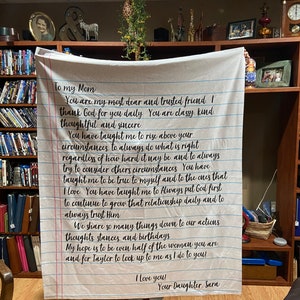 To my Mom,
You are my most dear and trusted friend. I
thank God for you daily. You are classy, kind
thoughtful and sincere.
You have taught me to rise above your
circumstances to always do what is right
regardless of how hard it may be and to always
try to consider others circumstances. You have
taught me to be true to myself and to the ones that
I love. You have taught me to Always put God first
to continue to grow that relationship daily and to
always trust Him.
We share so many things down to our actions
thoughts stances and birthdays.
My hope is to be even half of the woman you are
and for Taylor to look up to me as I do to you!
I love you!
Your Daughter, Sara